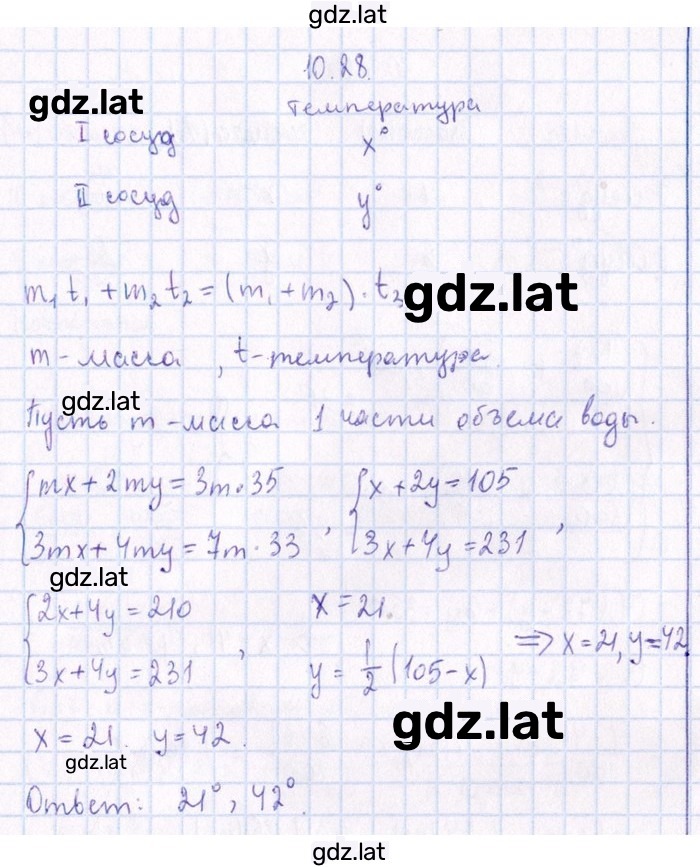 gdz.lat
10.28.
gdz.lat
температура
I сосуд x°
II сосуд y°
m₁t₁ + m₂t₂ = (m₁ + m₂) · t₃
gdz.lat
m - масса, t - температура.
gdz.lat
Пусть m - масса 1 части объема воды.
{mx + 2my = 3m · 35 {x + 2y = 105
3mx + 4my = 7m · 33 , 3x + 4y = 231 ,
gdz.lat
{2x + 4y = 210 x = 21.
3x + 4y = 231 , y = 1/2 (105 - x) => x = 21, y = 42
gdz.lat
x = 21. y = 42.
gdz.lat
Ответ: 21°, 42°.
gdz.lat